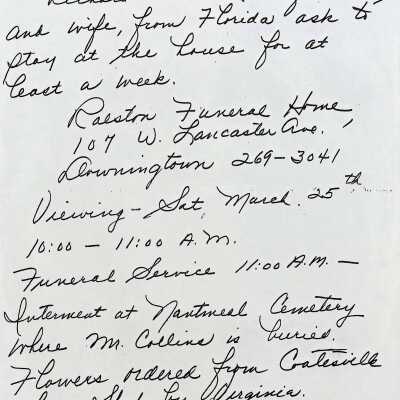 and wife, from Florida ask to
stay at the house for at
least a week.
Ralston Funeral Home,
107 W. Lancaster Ave.
Downingtown 269-3041
Viewing - Sat, March. 25th
10:00 - 11:00 A.M.
Funeral Service 11:00 A.M. -
Interment at Nantmeal Cemetery
where Mr. Collins is buried.
Flowers ordered from Coatesville
by Virginia.